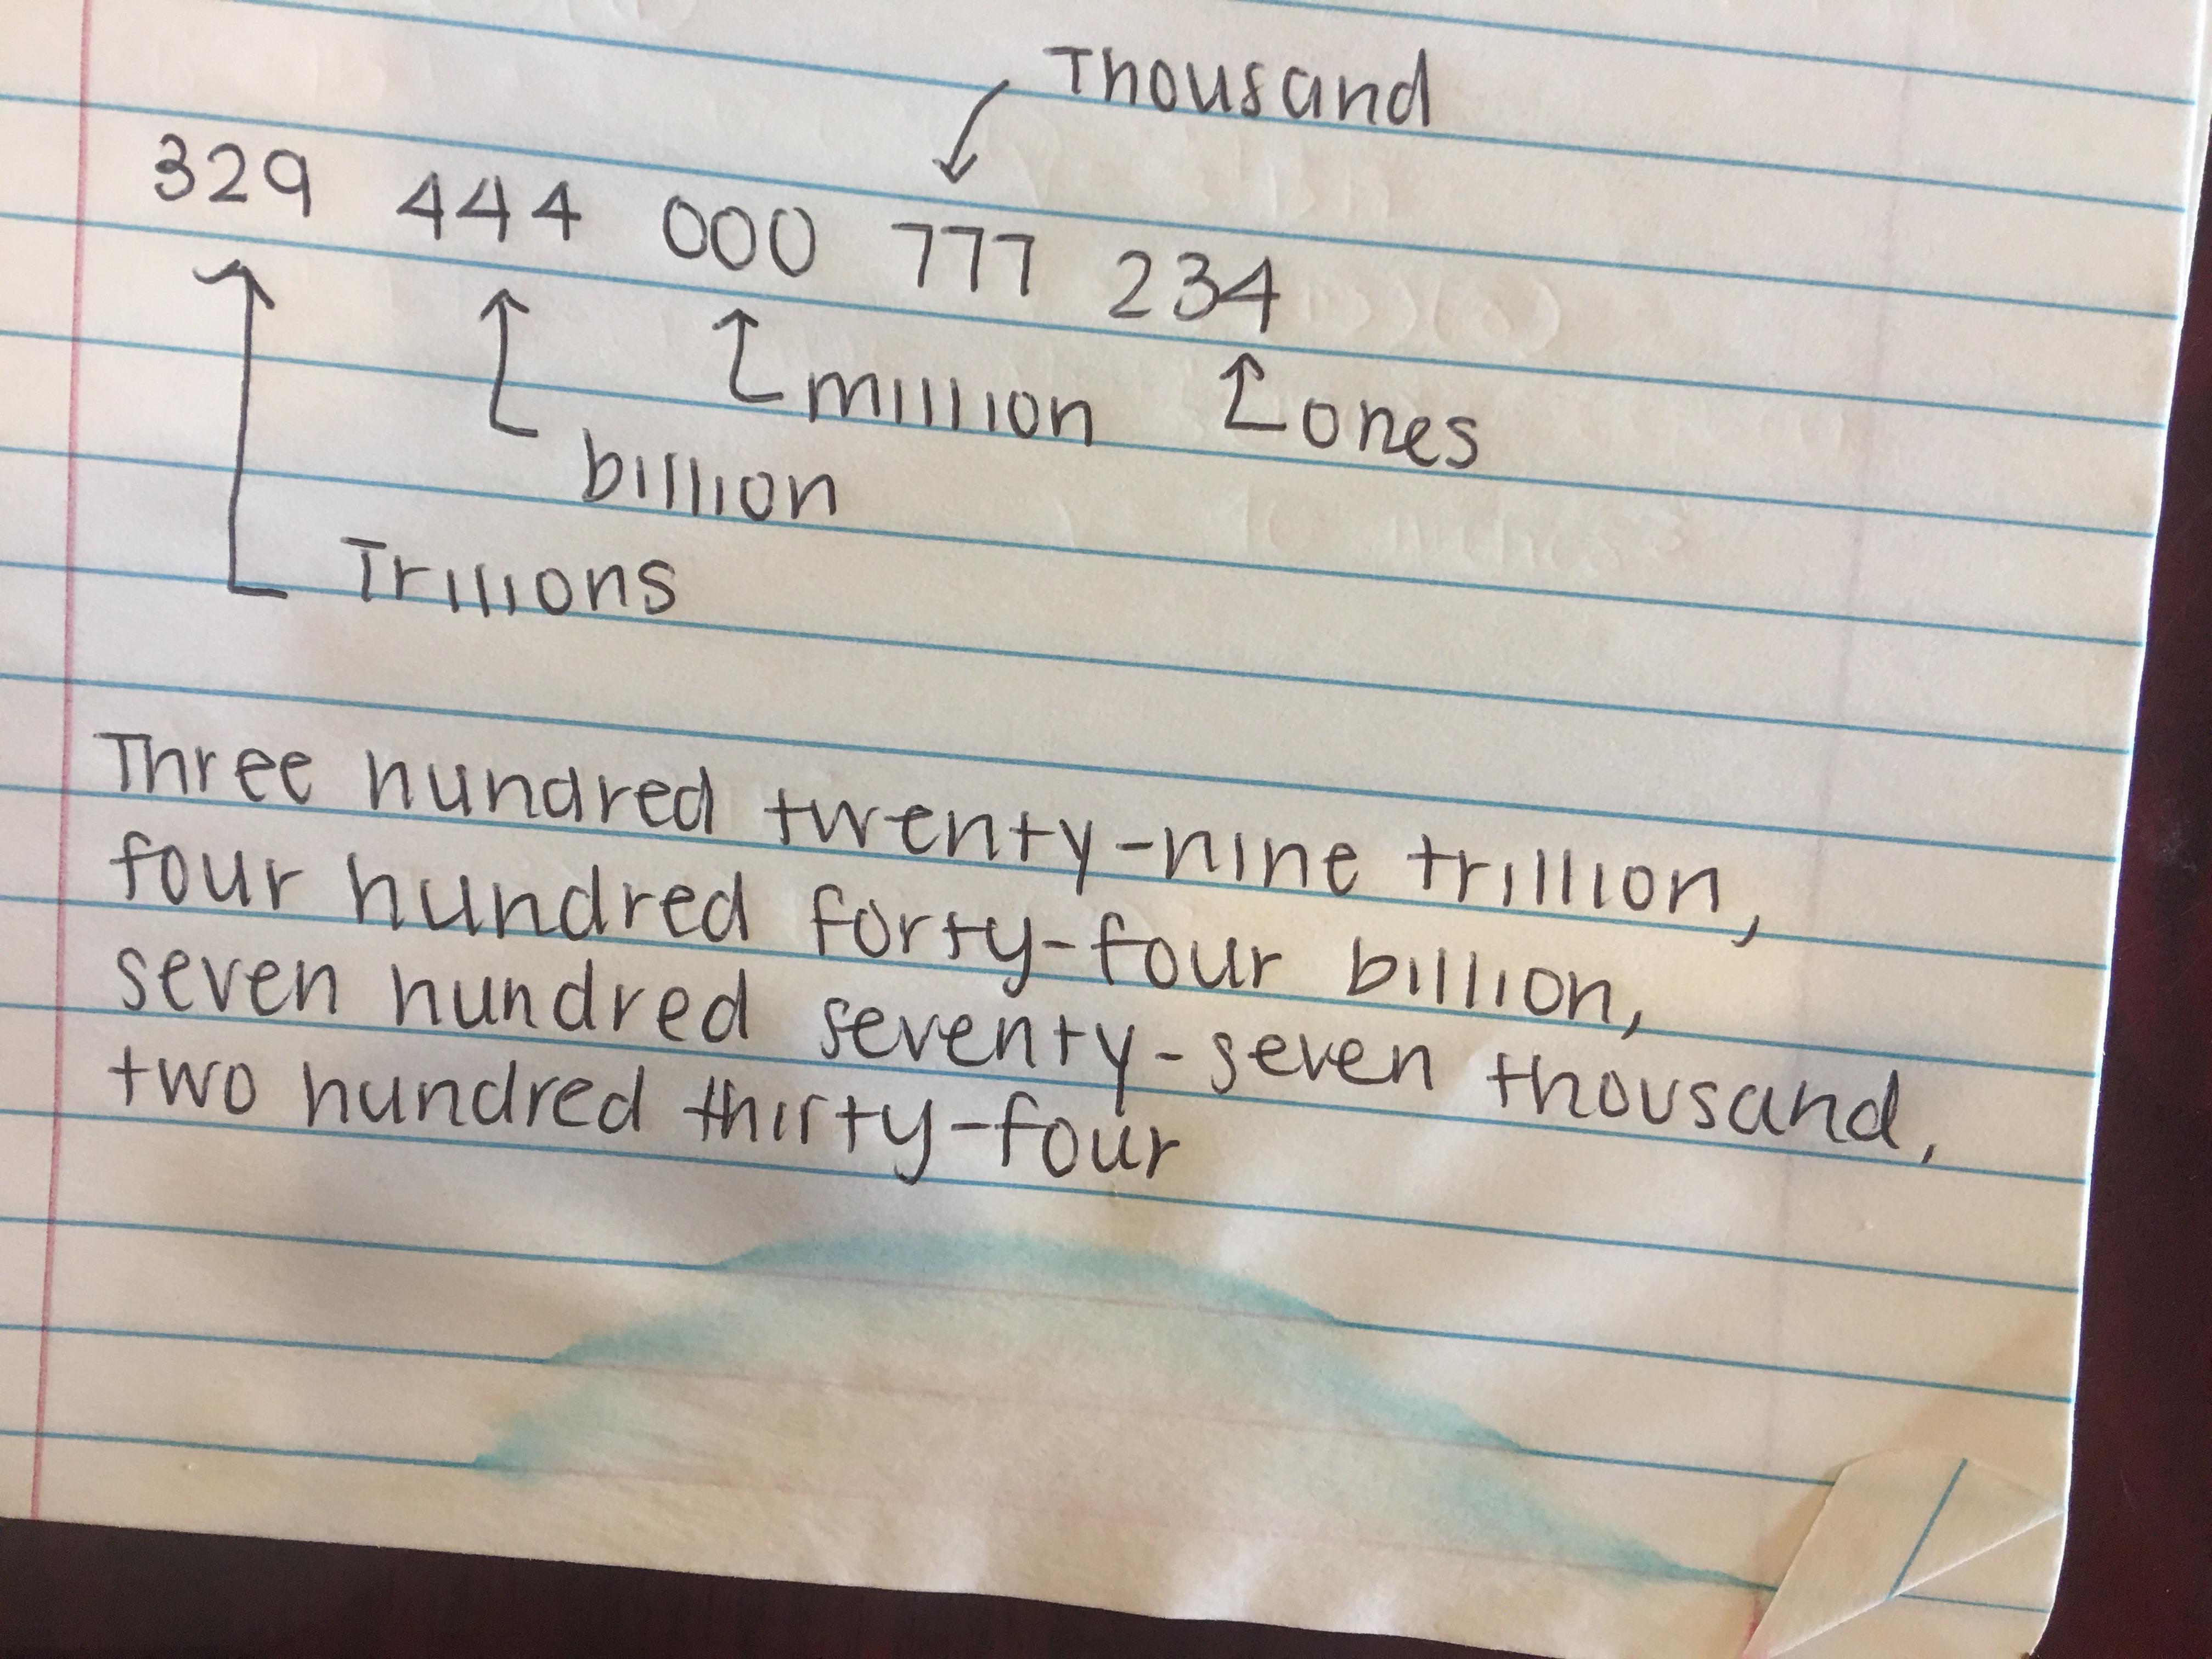 Thousand
329 444 000 777 234
million
ones
billion
Trillions
Three hundred twenty-nine trillion,
four hundred forty-four billion,
seven hundred seventy-seven thousand,
two hundred thirty-four